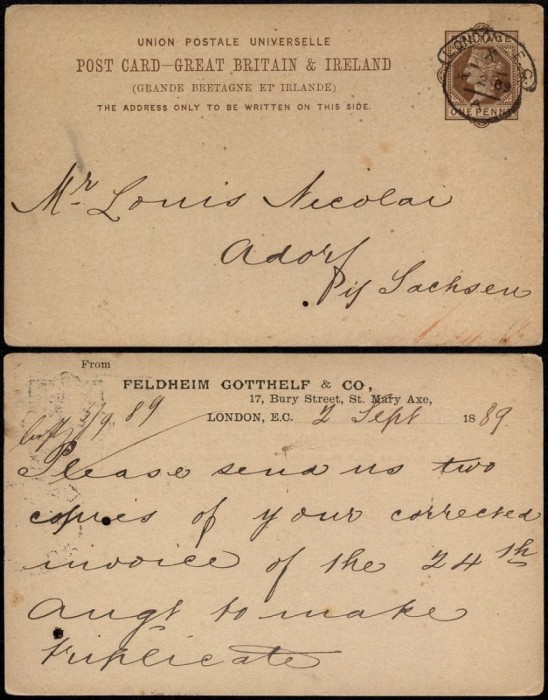 UNION POSTALE UNIVERSELLE
POST CARD—GREAT BRITAIN & IRELAND
(GRANDE BRETAGNE ET IRLANDE)
THE ADDRESS ONLY TO BE WRITTEN ON THIS SIDE.
POSTAGE
ONE PENNY
LONDON E.C.
89
Mr Louis Nicolai
Adorf
Sachsen
From
FELDHEIM GOTTHELF & CO,
17, Bury Street, St. Mary Axe,
LONDON, E.C. 2 Sept 1889
5/9 89
Please send us two
copies of your corrected
invoice of the 24th
Augt to make
triplicate